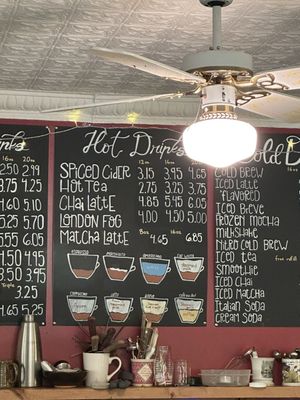 nks
16oz 20oz
2.50 2.99
3.75 4.25
4.60 5.10
5.25 5.70
5.55 6.05
4.50 4.95
3.50 3.95
Typical
3.25
4.65 5.25
Hot Drinks
12oz 16oz 20oz
Spiced Cider 3.15 3.95 4.65
Hot Tea 2.75 3.25 3.75
Chai Latte 4.85 5.45 6.05
London Fog 4.00 4.50 5.00
Matcha Latte 8oz 16oz
4.65 6.85
Espresso
Americano
Cappuccino
Latte
Cold D
Cold Brew
Iced Latte
Flavored
Iced Breve
Frozen Mocha
Milkshake
Nitro Cold Brew
Iced Tea
free refill
Smoothie
Iced Chai
Iced Matcha
Italian Soda
Cream Soda